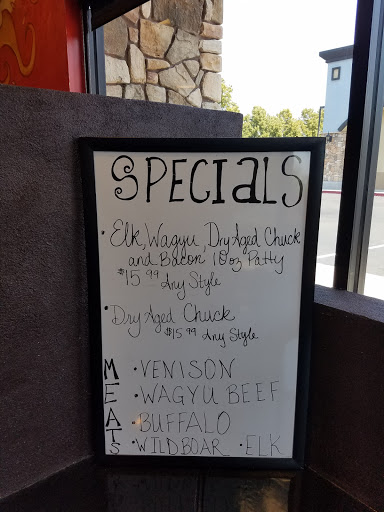 SPECIALS
• Elk, Wagyu, Dry Aged Chuck
and Bacon 10oz Patty
$15.99 Any Style
• Dry Aged Chuck
$15.99 Any Style
MEATS
• VENISON
• WAGYU BEEF
• BUFFALO
• WILD BOAR • ELK